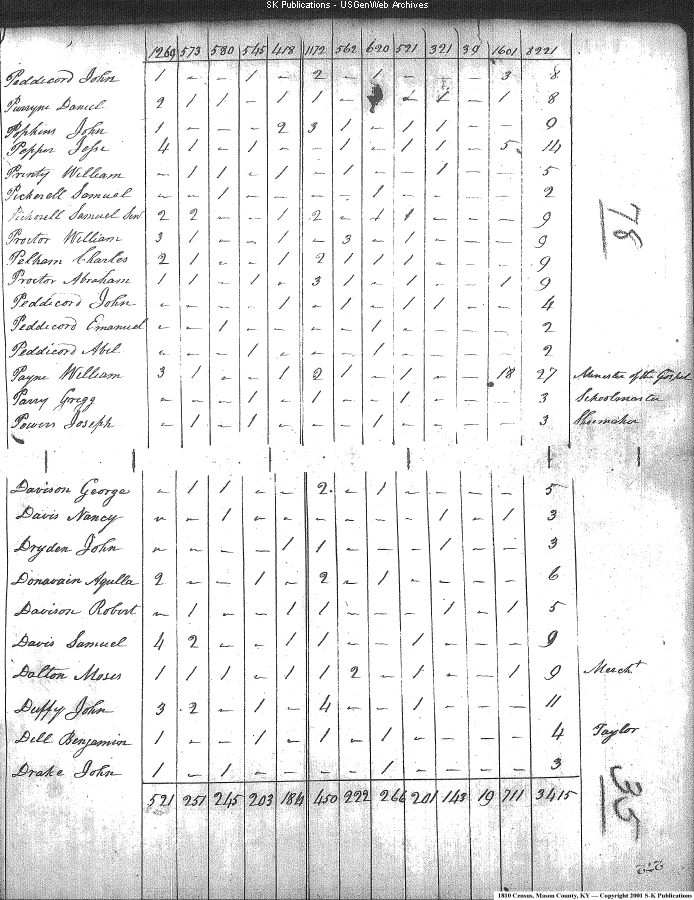 SK Publications - USGenWeb Archives
1269 573 580 545 418 1172 562 620 521 321 39 1601 8221
Peddicord John 1 - - 1 - 2 - 1 - - - 3 8
Purryne Daniel 2 1 1 - 1 1 - - 1 - 1 8
Popkins John 1 - - - 2 3 1 - 1 1 - - 9
Pepper Jesse 4 1 - 1 - - 1 - 1 1 - 5 14
Printy William - 1 1 - 1 - 1 - - 1 - - 5
Pickerell Samuel - - 1 - - - - 1 - - - - 2
Pickerell Samuel Sen 2 2 - - 1 2 - 1 1 - - - 9
Proctor William 3 1 - - 1 - 3 - 1 - - - 9
Pelham Charles 2 1 - - 1 2 1 1 1 - - - 9
Proctor Abraham 1 1 - 1 - 3 1 - 1 - - 1 9
Peddicord John - - - - 1 - 1 - 1 1 - - 4
Peddicord Emanuel - - 1 - - - - 1 - - - - 2
Peddicord Abel - - - 1 - - - 1 - - - - 2
Payne William 3 1 - - 1 2 1 - 1 - - 18 27 Minester of the Gospel
Parry Grigg - - - 1 - 1 - - 1 - - - 3 Schoolmaster
Powers Joseph - 1 - 1 - - - 1 - - - - 3 Shoemaker
78
Davison George - 1 1 - - 2 - 1 - - - - 5
Davis Nancy - - 1 - - - - - - 1 - 1 3
Dryden John - - - - 1 1 - - - 1 - - 3
Donavain Aqulla 2 - - 1 - 2 - 1 - - - - 6
Davison Robert - 1 - - 1 1 - - - 1 - 1 5
Davis Samuel 4 2 - - 1 1 - - 1 - - - 9
Dalton Moses 1 1 1 - 1 1 2 - 1 - - 1 9 Mercht
Duffy John 3 2 - 1 - 4 - - 1 - - - 11
Dell Benjamin 1 - - 1 - 1 - 1 - - - - 4 Taylor
Drake John 1 - 1 - - - - 1 - - - - 3
521 251 245 203 184 450 222 266 201 143 19 711 3415
35
1810 Census, Mason County, KY — Copyright 2001 S-K Publications